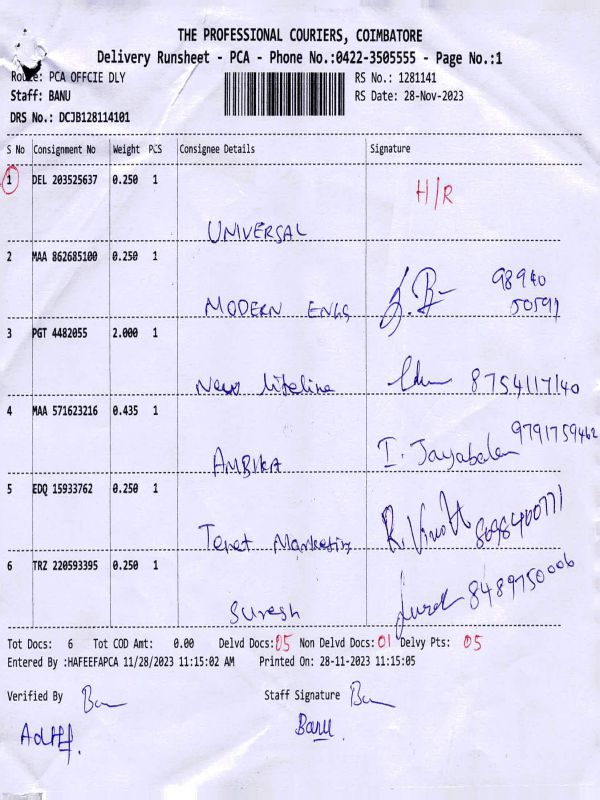 THE PROFESSIONAL COURIERS, COIMBATORE
Delivery Runsheet - PCA - Phone No.:0422-3505555 - Page No.:1
Route: PCA OFFCIE DLY RS No.: 1281141
Staff: BANU RS Date: 28-Nov-2023
DRS No.: DCJB128114101
S No Consignment No Weight PCS Consignee Details Signature
1 DEL 203525637 0.250 1 H/R
UNIVERSAL
2 MAA 862685100 0.250 1 98940
MODERN ENGS 50591
3 PGT 4482055 2.000 1
New lifeline 8754117140
4 MAA 571623216 0.435 1 9791759462
AMBIKA I. Jayabalan
5 EDQ 15933762 0.250 1
Tenet Marketing R. Vinoth 8098400771
6 TRZ 220593395 0.250 1 8489750006
Suresh
Tot Docs: 6 Tot COD Amt: 0.00 Delvd Docs:05 Non Delvd Docs: 01 Delvy Pts: 05
Entered By :HAFEEFAPCA 11/28/2023 11:15:02 AM Printed On: 28-11-2023 11:15:05
Verified By Staff Signature
Banu